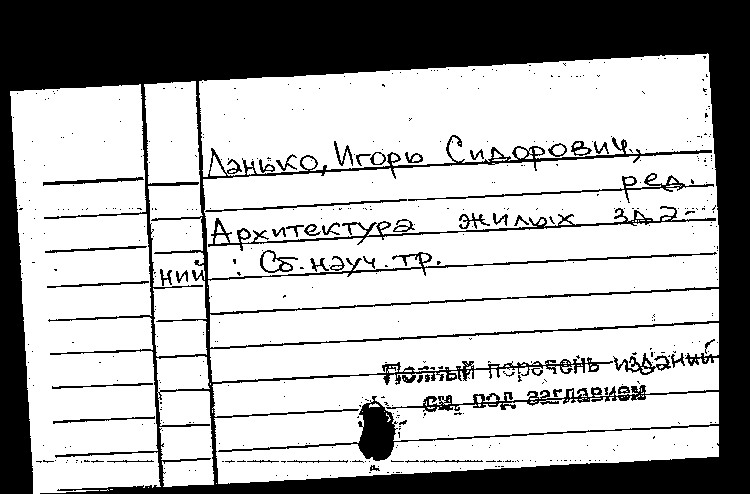 Ланько, Игорь Сидорович,
ред.
Архитектура жилых зда-
ний : Сб. науч. тр.
Полный перечень изданий
см. под заглавием